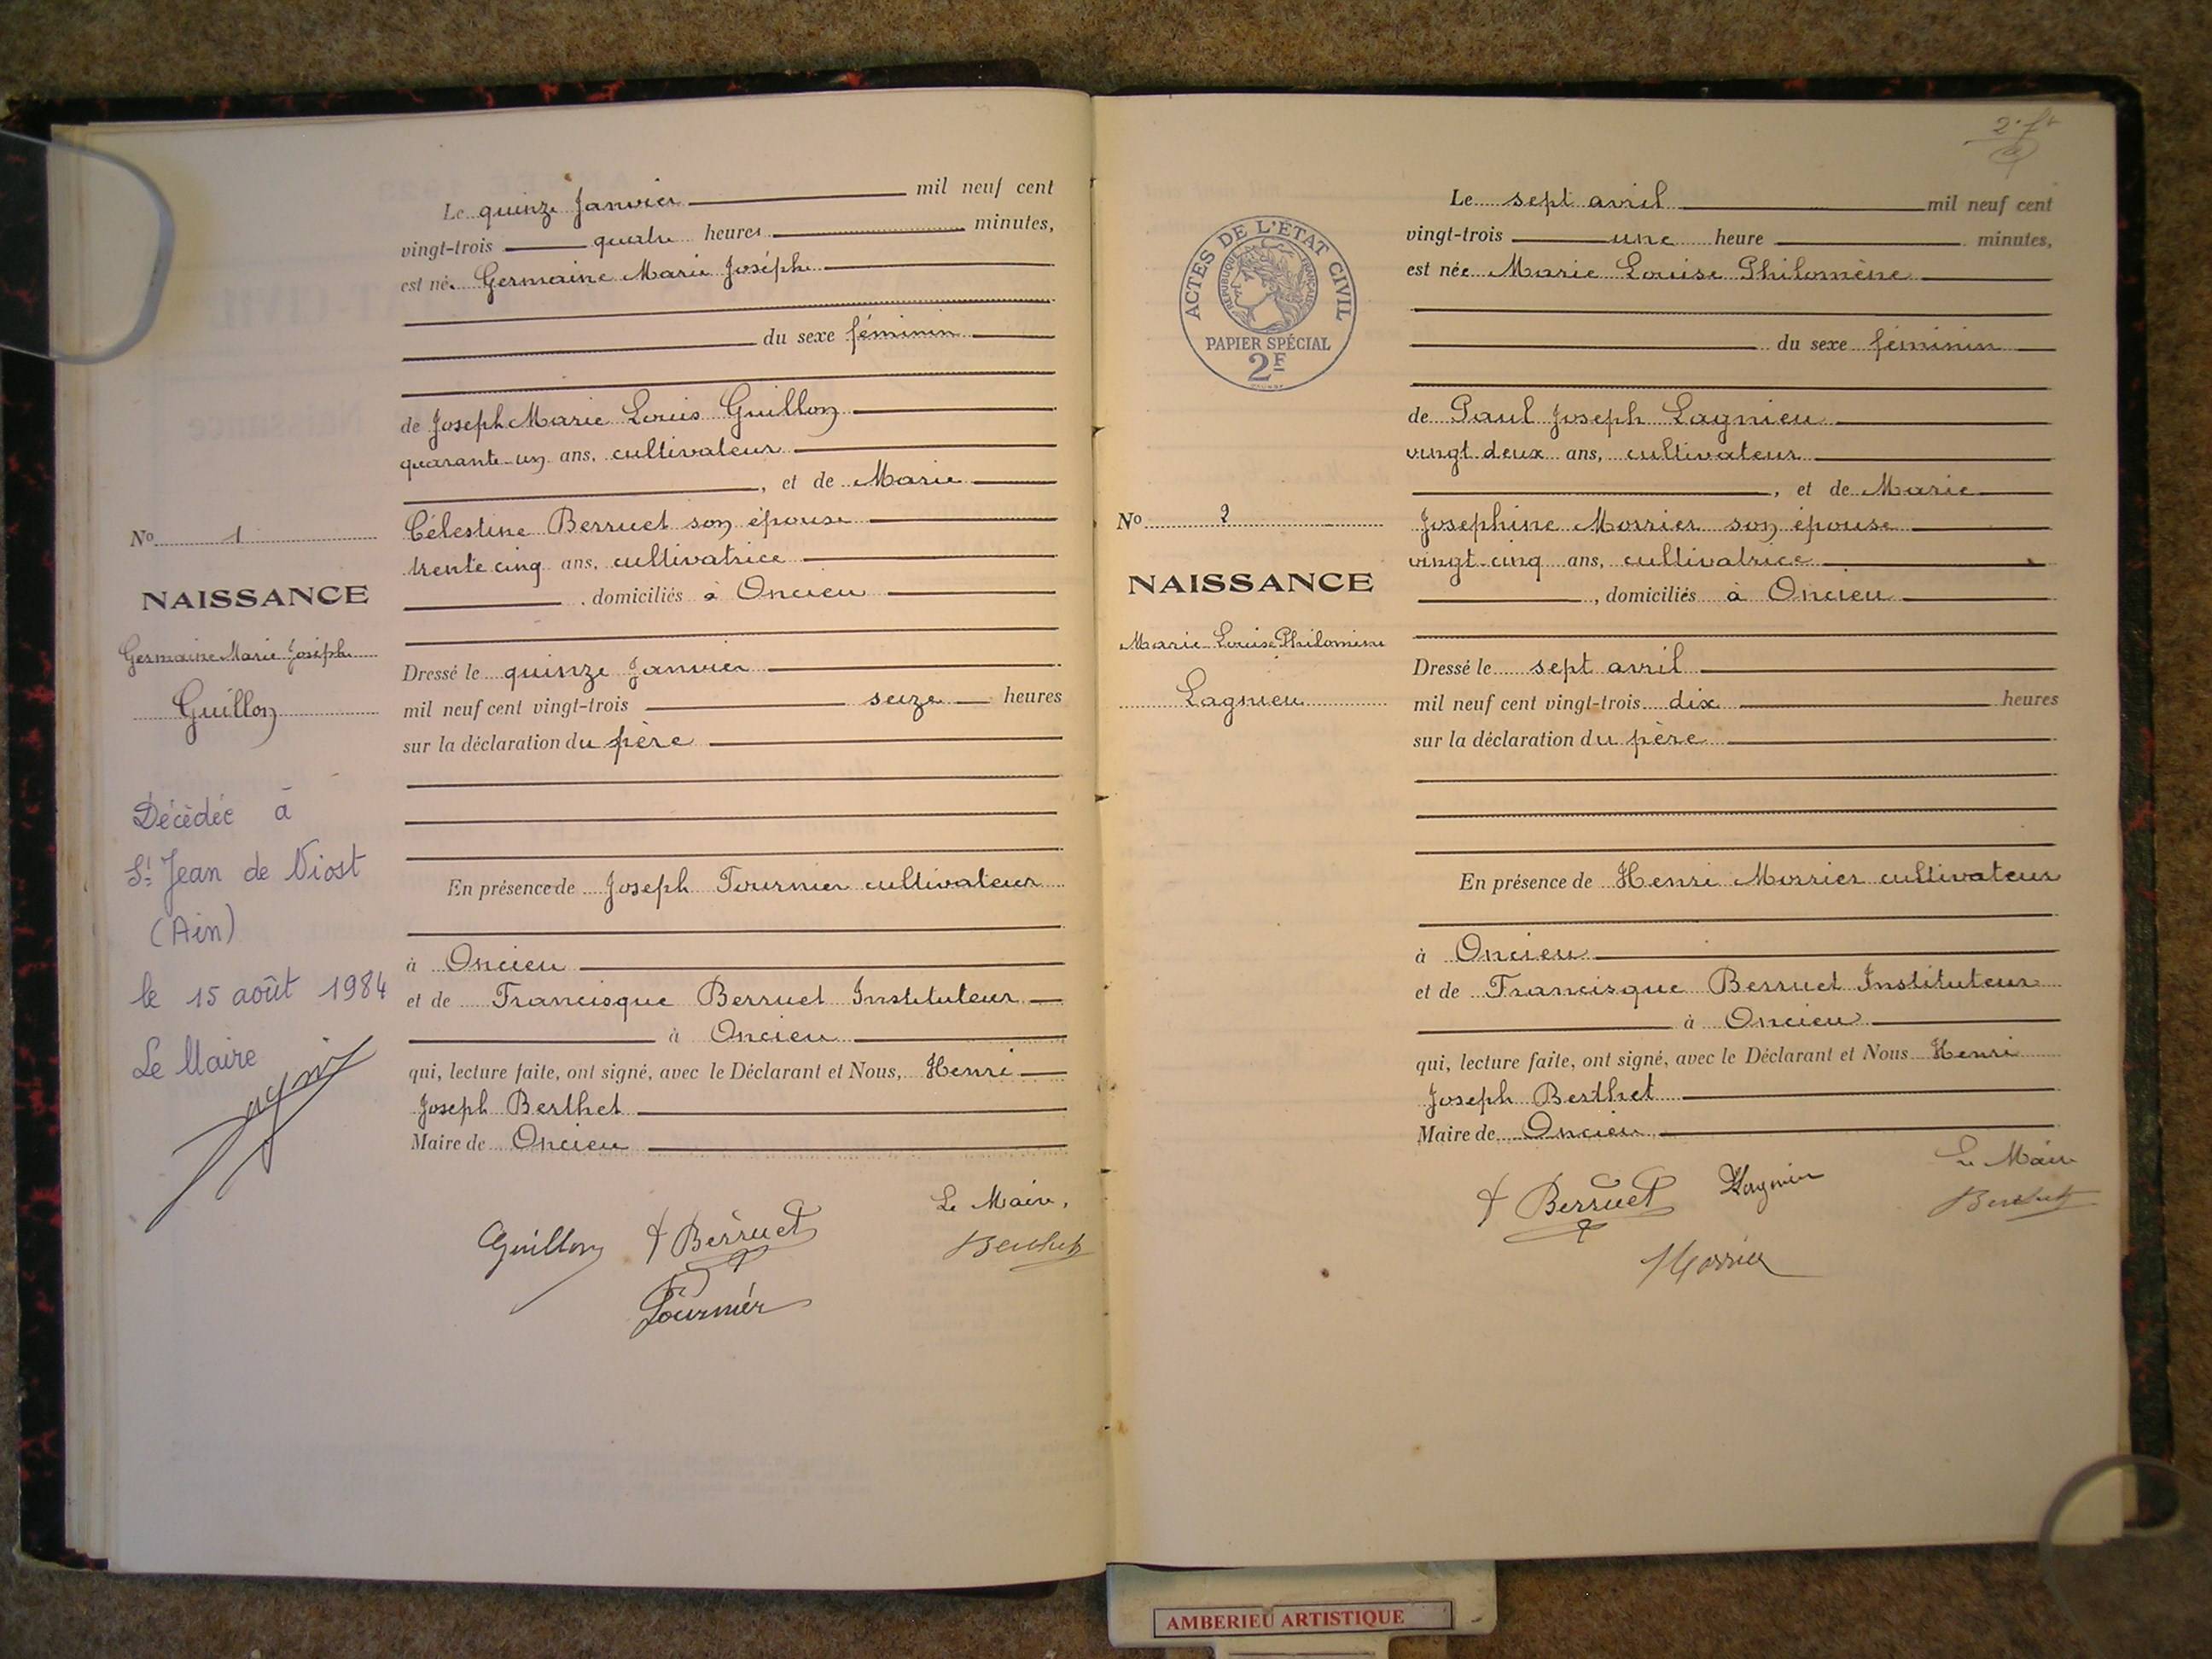 Le quinze Janvier mil neuf cent
vingt-trois quatre heures minutes,
est née Germaine Marie Josèphe
du sexe féminin
de Joseph Marie Louis Guillon
quarante-un ans, cultivateur
, et de Marie
Célestine Berruet son épouse
trente cinq ans, cultivatrice
, domiciliés à Oncieu
Dressé le quinze Janvier
mil neuf cent vingt-trois seize heures
sur la déclaration du père
En présence de Joseph Tournier cultivateur
à Oncieu
et de Francisque Berruet Instituteur
à Oncieu
qui, lecture faite, ont signé, avec le Déclarant et Nous, Henri
Joseph Berthet
Maire de Oncieu
Le Maire,
Guillon F Berruet Berthet
Tournier
No 1
NAISSANCE
Germaine Marie Josèphe
Guillon
Décédée à
St Jean de Niost
(Ain)
le 15 août 1984
Le Maire
ACTES DE L'ETAT CIVIL
REPUBLIQUE FRANÇAISE
PAPIER SPÉCIAL
2F
No 2
NAISSANCE
Marie Louise Philomène
Lagnieu
Le sept avril mil neuf cent
vingt-trois une heure minutes,
est née Marie Louise Philomène
du sexe féminin
de Paul Joseph Lagnieu
vingt deux ans, cultivateur
, et de Marie
Josephine Morrier son épouse
vingt-cinq ans, cultivatrice
, domiciliés à Oncieu
Dressé le sept avril
mil neuf cent vingt-trois dix heures
sur la déclaration du père
En présence de Henri Morrier cultivateur
à Oncieu
et de Francisque Berruet Instituteur
à Oncieu
qui, lecture faite, ont signé, avec le Déclarant et Nous Henri
Joseph Berthet
Maire de Oncieu
Le Maire
F Berruet Lagnieu Berthet
Morrier
AMBERIEU ARTISTIQUE